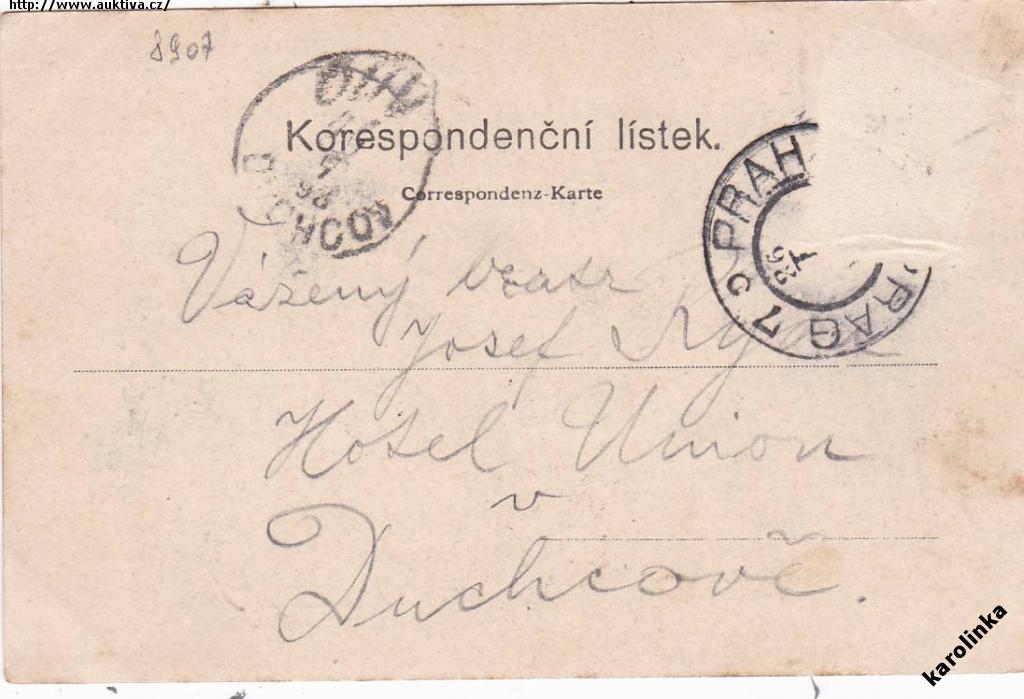 http://www.auktiva.cz/
8907
Korespondenční lístek.
Correspondenz-Karte
DUCHCOV
98
PRAH
PRAG 7 c
98
Vázený bratr
Josef
Hotel Union
v
Duchcově.
karolinka